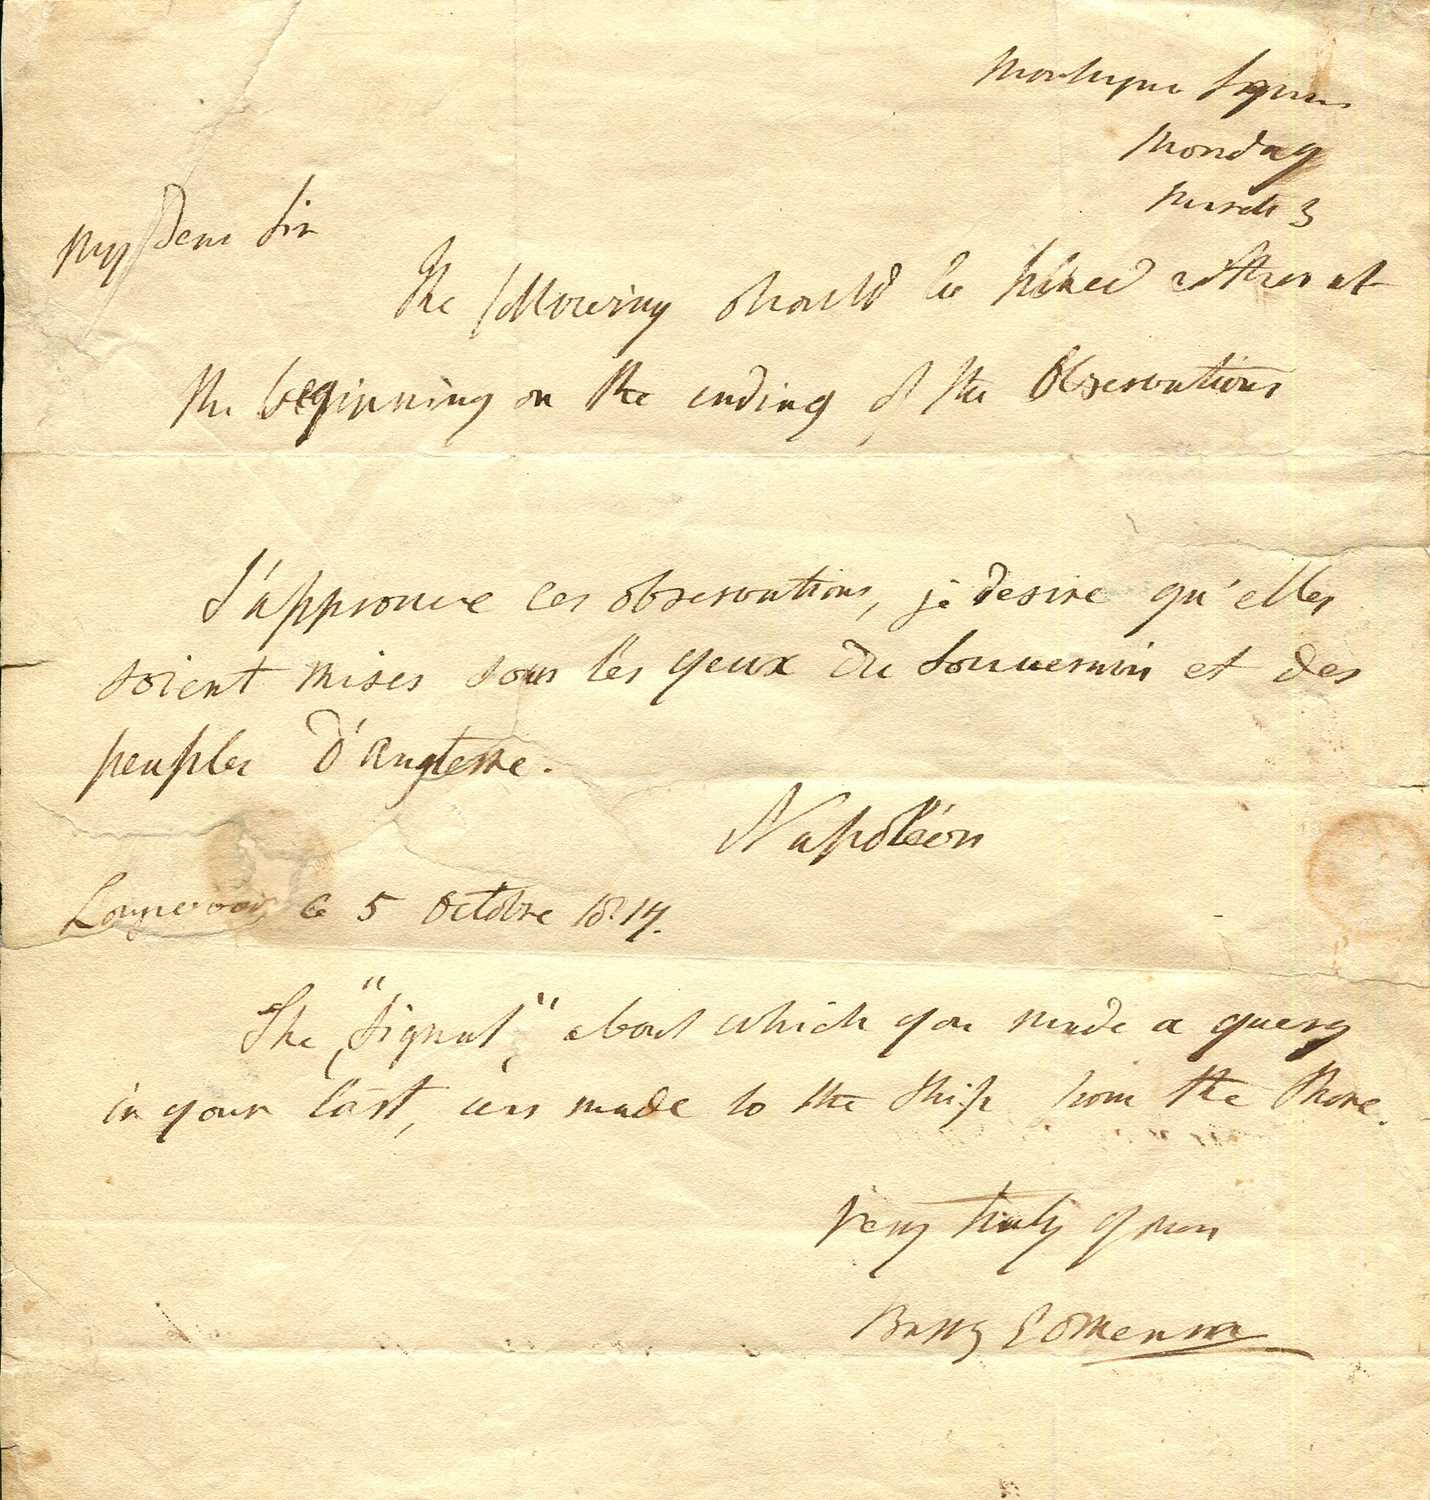 Montague Square
Monday
March 3
My Dear Sir
The following should be placed either at
the beginning or the ending of the Observations
J'approuve ces observations, je desire qu'elles
soient mises sous les yeux du Souverain et des
peuples d'Angleterre.
Napoléon
Longwood le 5 Octobre 1817.
The "Signal" about which you made a query
in your last, was made to the Ship from the Shore.
Very truly yours
Barry E O'Meara